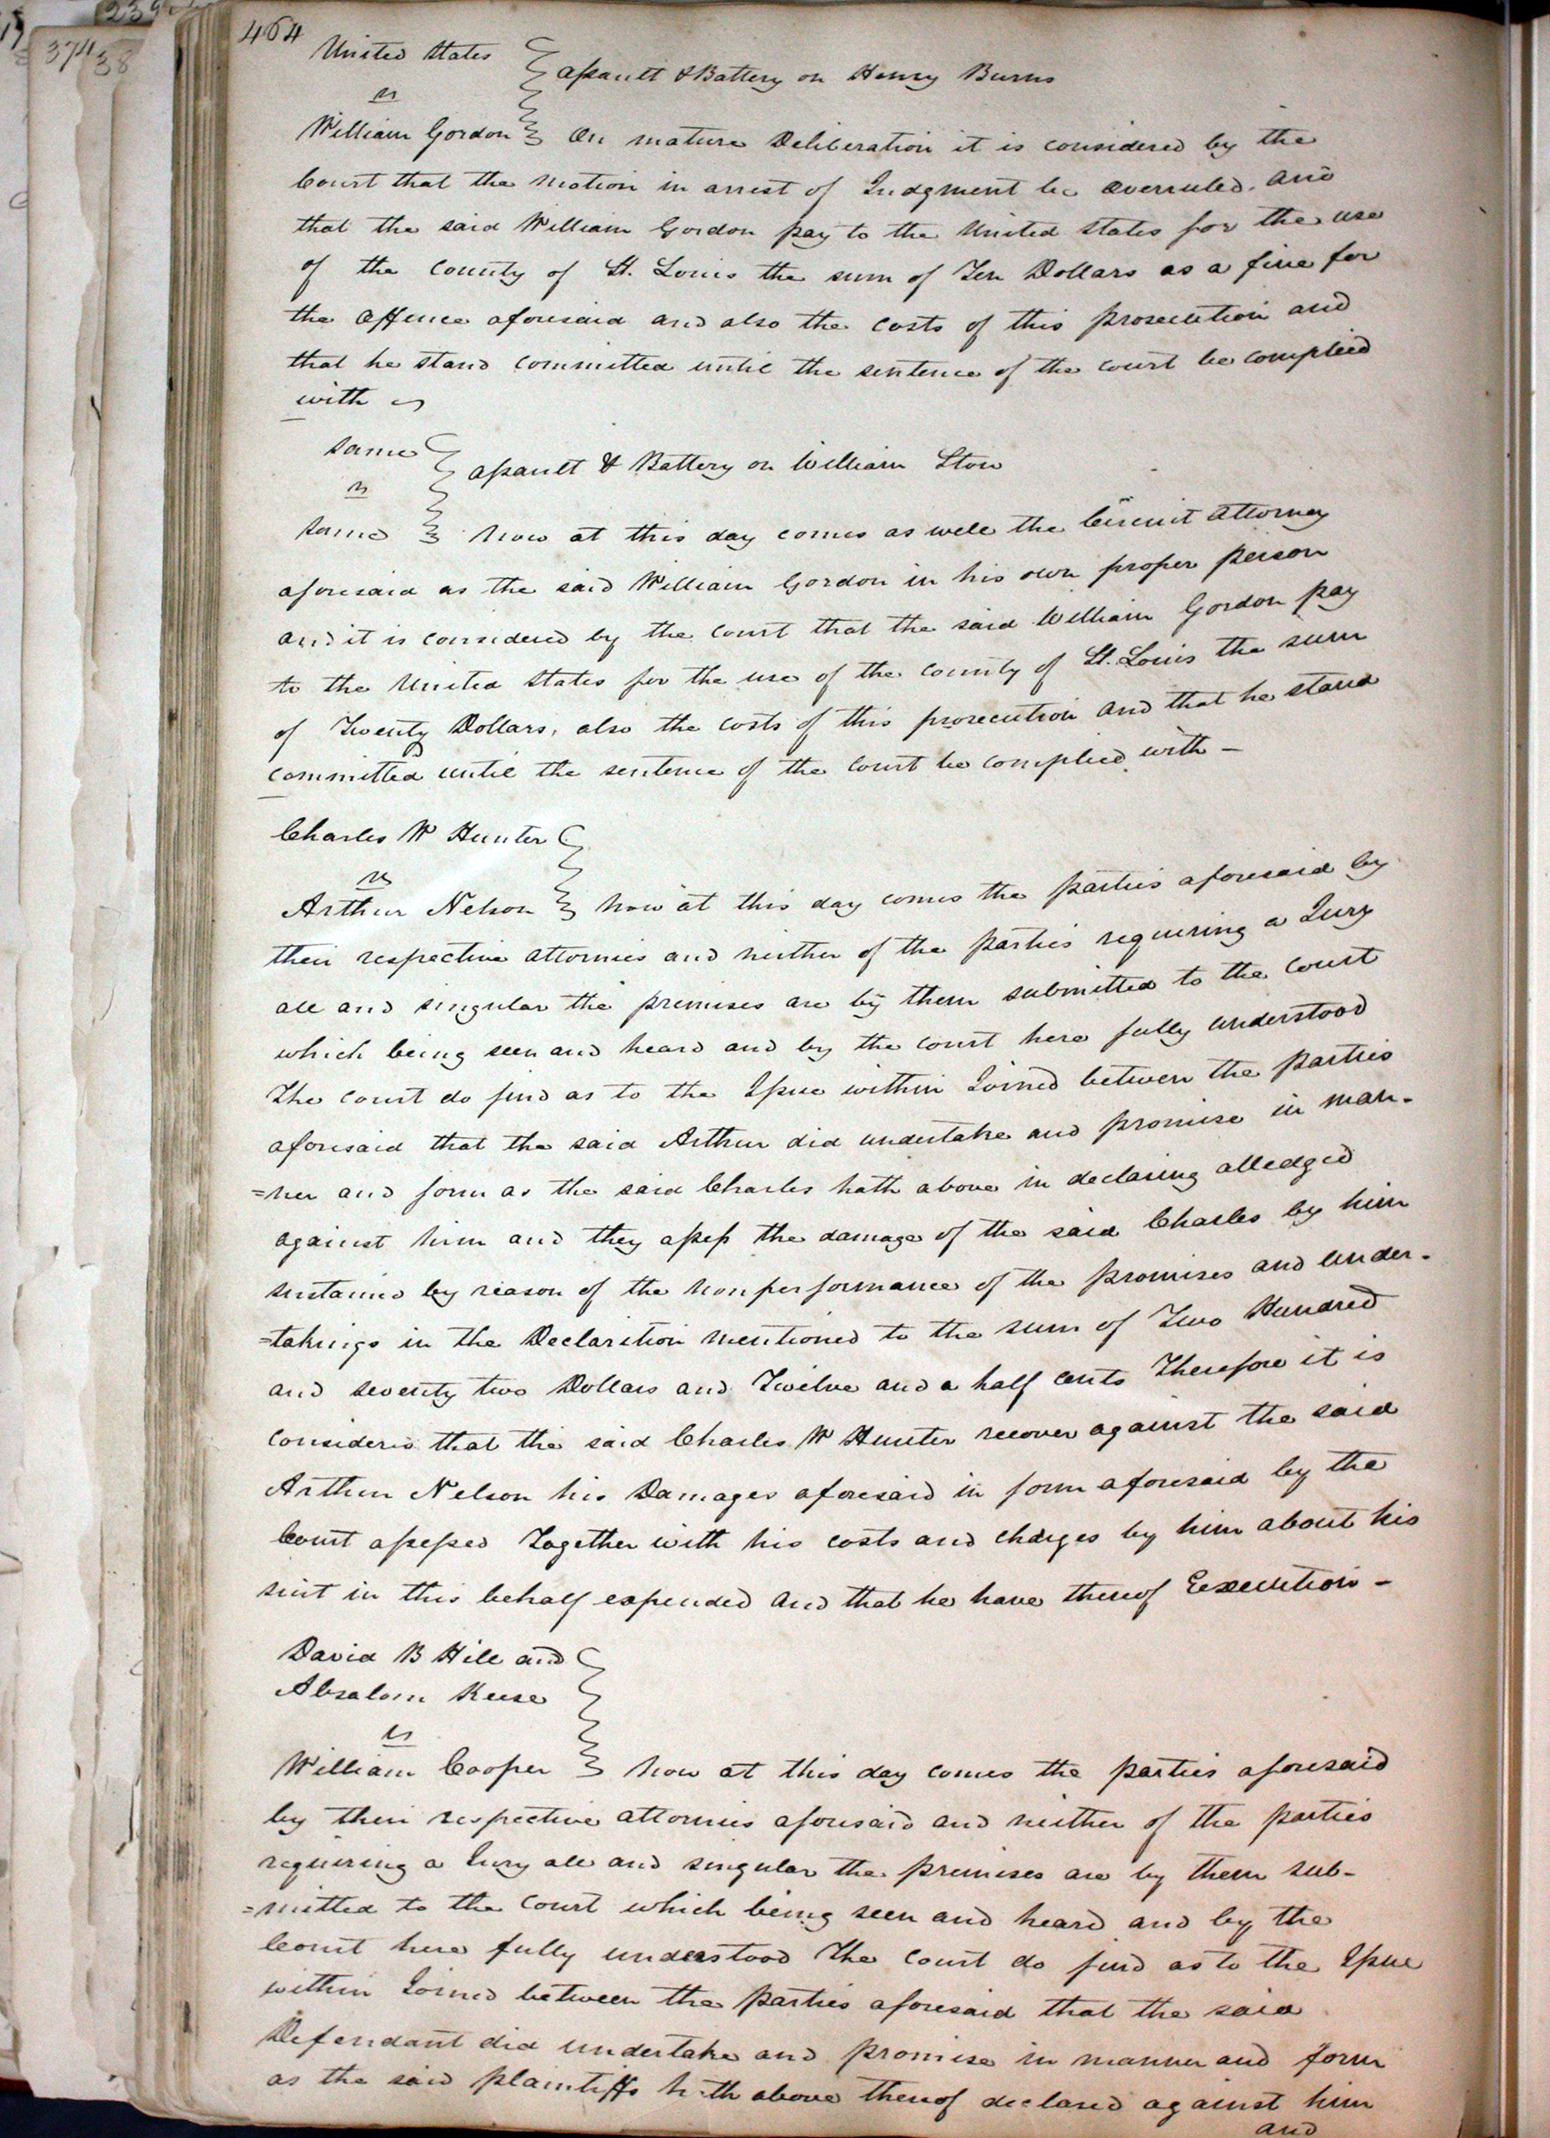 464
United States
assault & Battery on Henry Burns
vs
William Gordon On mature Deliberation it is considered by the
Court that the motion in arrest of Judgment be overruled. and
that the said William Gordon pay to the United States for the use
of the County of St. Louis the sum of Ten Dollars as a fine for
the offence aforesaid and also the costs of this prosecution and
that he stand committed until the sentence of the court be complied
with
Same
assault & Battery on William Stow
vs
Same Now at this day comes as well the Circuit attorney
aforesaid as the said William Gordon in his own proper person
and it is considered by the court that the said William Gordon pay
to the United States for the use of the County of St. Louis the sum
of Twenty Dollars, also the costs of this prosecution and that he stand
committed until the sentence of the court be complied with –
Charles W Hunter
vs
Arthur Nelson Now at this day comes the parties aforesaid by
their respective attornies and neither of the parties requiring a Jury
all and singular the premises are by them submitted to the court
which being seen and heard and by the court here fully understood
The court do find as to the Issue within Joined between the parties
aforesaid that the said Arthur did undertake and promise in man-
=ner and form as the said Charles hath above in declaring alledged
against him and they assess the damage of the said Charles by him
sustained by reason of the nonperformance of the promises and under-
=takings in the Declaration mentioned to the sum of Two Hundred
and seventy two Dollars and Twelve and a half cents Therefore it is
considered that the said Charles W Hunter recover against the said
Arthur Nelson his Damages aforesaid in form aforesaid by the
Court assessed Together with his costs and charges by him about his
suit in this behalf expended and that he have thereof Execution –
David B Hill and
Absalom Keese
vs
William Cooper Now at this day comes the parties aforesaid
by their respective attornies aforesaid and neither of the parties
requiring a Jury all and singular the premises are by them sub-
=mitted to the court which being seen and heard and by the
Court here fully understood The court do find as to the Issue
within Joined between the parties aforesaid that the said
Defendant did undertake and promise in manner and form
as the said plaintiffs hath above thereof declared against him
and